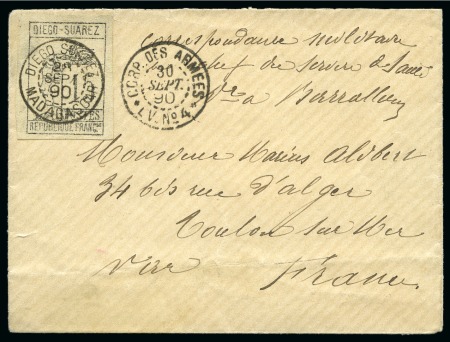 DIEGO-SUAREZ
DIEGO SUAREZ
SEPT
90
MADAGASCAR
POSTES
RÉPUBLIQUE FRANÇ
CORP. DES ARMÉES
30
SEPT.
90
LV. Nº 4
correspondance militaire
chef du service de santé
Monsieur Marius Alibert
34 bis rue d'alger
Toulon sur Mer
Var France